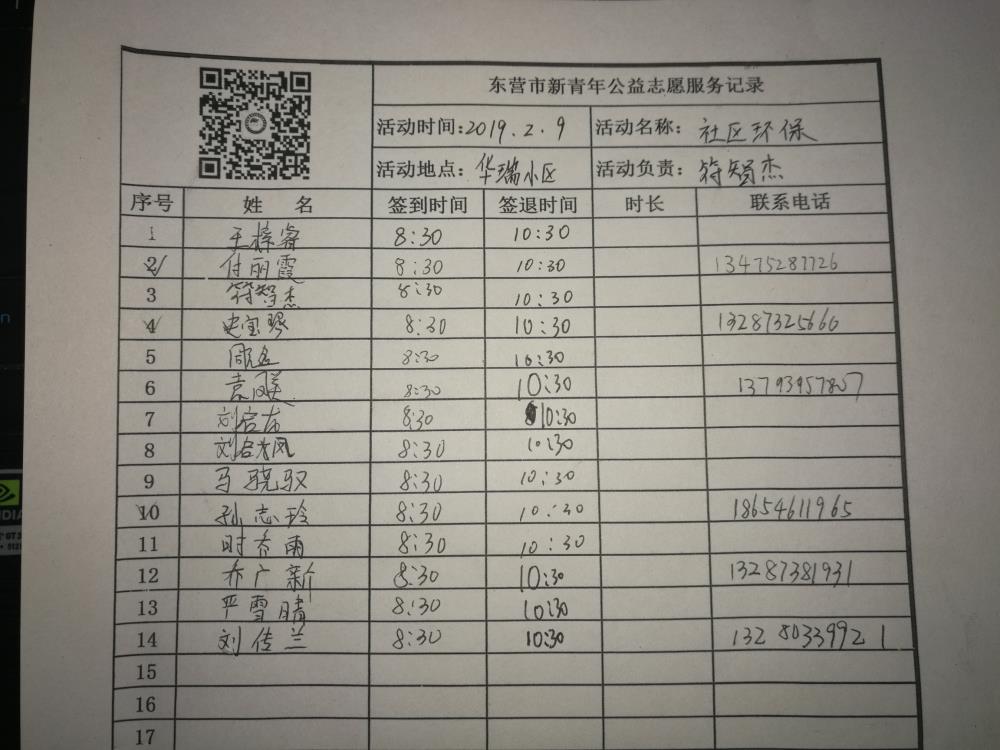 东营市新青年公益志愿服务记录
活动时间:2019.2.9 活动名称: 社区环保
活动地点: 华瑞小区 活动负责: 符智杰
序号 姓 名 签到时间 签退时间 时长 联系电话
1 王梓睿 8:30 10:30
2 付丽霞 8:30 10:30 13475287726
3 符智杰 8:30 10:30
4 史宝琴 8:30 10:30 13287325660
5 8:30 10:30
6 8:30 10:30 13793957807
7 8:30 10:30
8 8:30 10:30
9 马骁驭 8:30 10:30
10 孙志玲 8:30 10:30 18654611965
11 时乔雨 8:30 10:30
12 乔广新 8:30 10:30 13287381931
13 严雪晴 8:30 10:30
14 刘传兰 8:30 10:30 13280339921
15
16
17